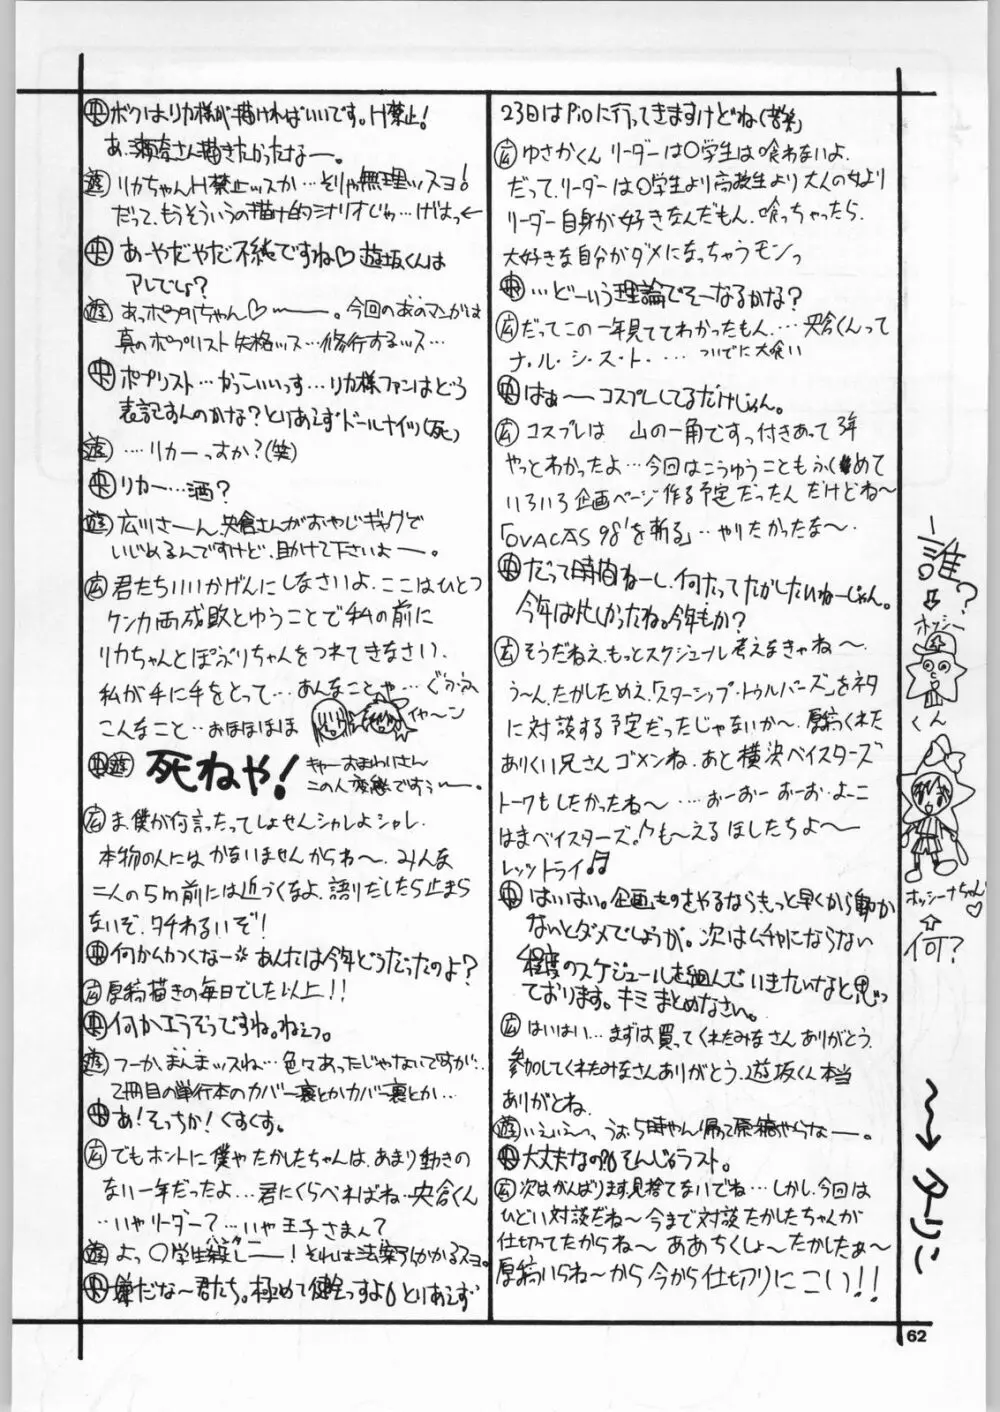 央 ボクはリカ様が描ければいいです。H禁止!
あ、瀬奈さん描きたかったなー。
遊 リカちゃんH禁止ッスか…そりゃ無理ッスヨ!
だって、もうそういうの描け的シナリオじゃ…げはっ←
央 あーやだやだ不純ですね♡遊坂くんは
アレでしょ?
遊 あっポプリちゃん♡〜〜。今回のあのマンガは
真のポプリスト失格ッス…修行するッス…
央 ポプリスト…かっこいいっす…リカ様ファンはどう
表記すんのかな?とりあえずドールナイツ(死)
遊 ….リカーっすか?(笑)
央 リカー…酒?
遊 広川さーん、央倉さんがおやじギャグで
いじめるんですけど、助けて下さいよー。
広 君たちいいかげんにしなさいよ、ここはひとつ
ケンカ両成敗とゆうことで私の前に
リカちゃんとぽぷりちゃんをつれてきなさい、
私が手に手をとって…あんなことや…ぐふふ
こんなこと…おほほほほ イヤ〜ン
央遊 死ねや! キャーおまわりさん
この人変態ですぅー。
広 ま、僕が何言ったってしょせんシャレよシャレ、
本物の人にはかないませんからね〜、みんな
二人の5m前には近づくなよ、語りだしたら止まら
ないぞ、タチわるいぞ!
央 何かムカつくなー あんたは今年どうだったのよ?
広 原稿描きの毎日でした以上!!
央 何かエラそうですね。ねぇっ。
遊 つーか、まんまッスね…色々あったじゃないですか…
2冊目の単行本のカバー裏とかカバー裏とか…
央 あ!そっちか!くすくす。
広 でもホントに僕やたかしたちゃんは、あまり動きの
ない一年だったよ…君にくらべればね…央倉くん
…いやリーダー?…いや王子さまぁ?
遊 よっ、〇学生殺しー! それは法案にひっかかるスヨ。
ハンター
央 嫌だな〜君たち。極めて健全っすよ とりあえず
23日はPiOに行ってきますけどね(苦笑)
広 ゆさかくん リーダーは〇学生は喰わないよ、
だって、リーダーは〇学生より高校生より大人の女より
リーダー自身が好きなんだもん、喰っちゃったら、
大好きな自分がダメになっちゃうモンっ
央 …どーいう理論でそーなるかな?
広 だってこの一年見ててわかったもん….央倉くんって
ナ・ル・シ・ス・ト・… ついでに大喰い
央 はぁ〜 コスプレしてるだけじゃん。
広 コスプレは 山の一角ですっ付きあって3年
やっとわかったよ…今回はこうゆうこともふくめて
いろいろ企画ページ作る予定だったんだけどね〜
「OVACAS 98'を斬る」…やりたかったな〜、
央 だって時間ねーし、何たってたかしたいねーじゃん。
今年は忙しかったね。今年もか?
広 そうだねえ、もっとスケジュール考えなきゃね〜、
う〜ん、たかしためえ、「スターシップ・トゥルパーズ」をネタ
に対談する予定だったじゃないか〜、原稿くれた
ありくい兄さんゴメンね、あと横浜ベイスターズ
トークもしたかったね〜….おーおーおーお・よーこ
はまベイスターズ♪も〜えるほしたちよ〜
レッツトライ♬
央 はいはい。企画ものをやるなら、もっと早くから動か
ないとダメでしょうが。次はムチャにならない
程度のスケジュールを組んでいきたいなと思っ
ております。キミまとめなさい。
広 はいはい…まずは買ってくれたみなさんありがとう、
参加してくれたみなさんありがとう、遊坂くん本当
ありがとね、
遊 いえいえ〜っ、うお、5時やん、帰って原稿やらなー。
央 大丈夫なの? そんじゃラスト。
広 次はがんばります見捨てないでね…しかし、今回は
ひどい対談だね〜今まで対談たかしたちゃんが
仕切ってたからね〜ああちくしょ〜たかしたぁ〜
原稿いらね〜から今から仕切りにこい!!
誰?
ホッシー
くん
ホッシーナちゃん
♡
何?
〜→ターリン
62